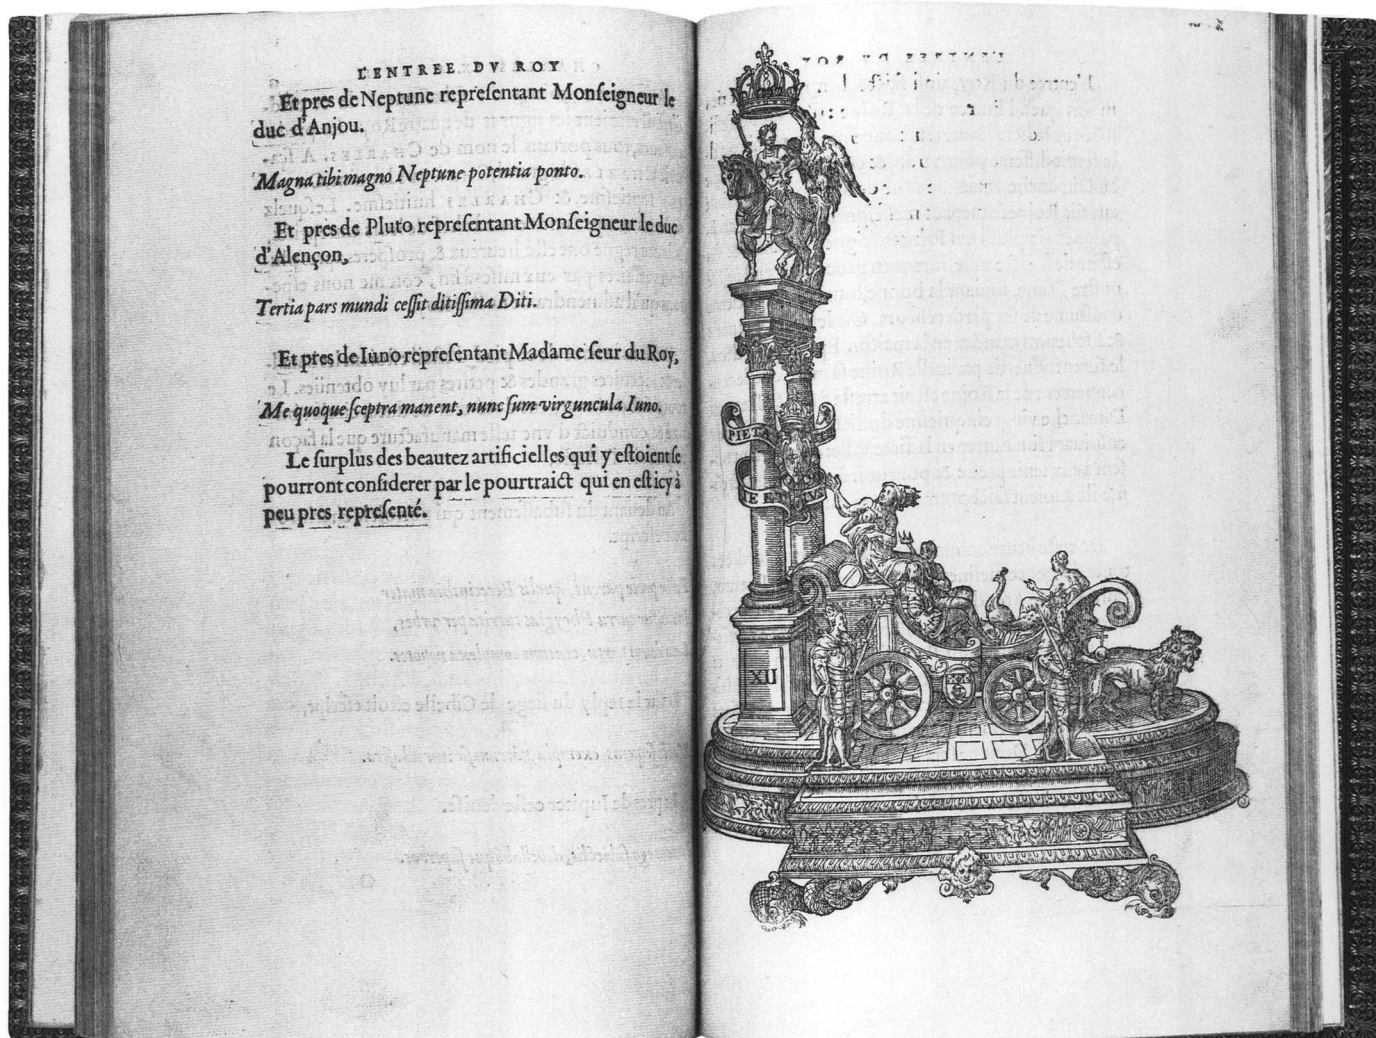 L'ENTREE DV ROY
Et pres de Neptune repreſentant Monſeigneur le
duc d'Anjou.
Magna tibi magno Neptune potentia ponto.
Et pres de Pluto repreſentant Monſeigneur le duc
d'Alençon,
Tertia pars mundi ceſſit ditiſſima Diti.
Et pres de Iuno repreſentant Madame ſeur du Roy,
Me quoque ſceptra manent, nunc ſum virguncula Iuno.
Le ſurplus des beautez artificielles qui y eſtoient ſe
pourront conſiderer par le pourtraict qui en eſt icy à
peu pres repreſenté.
PIET
XII